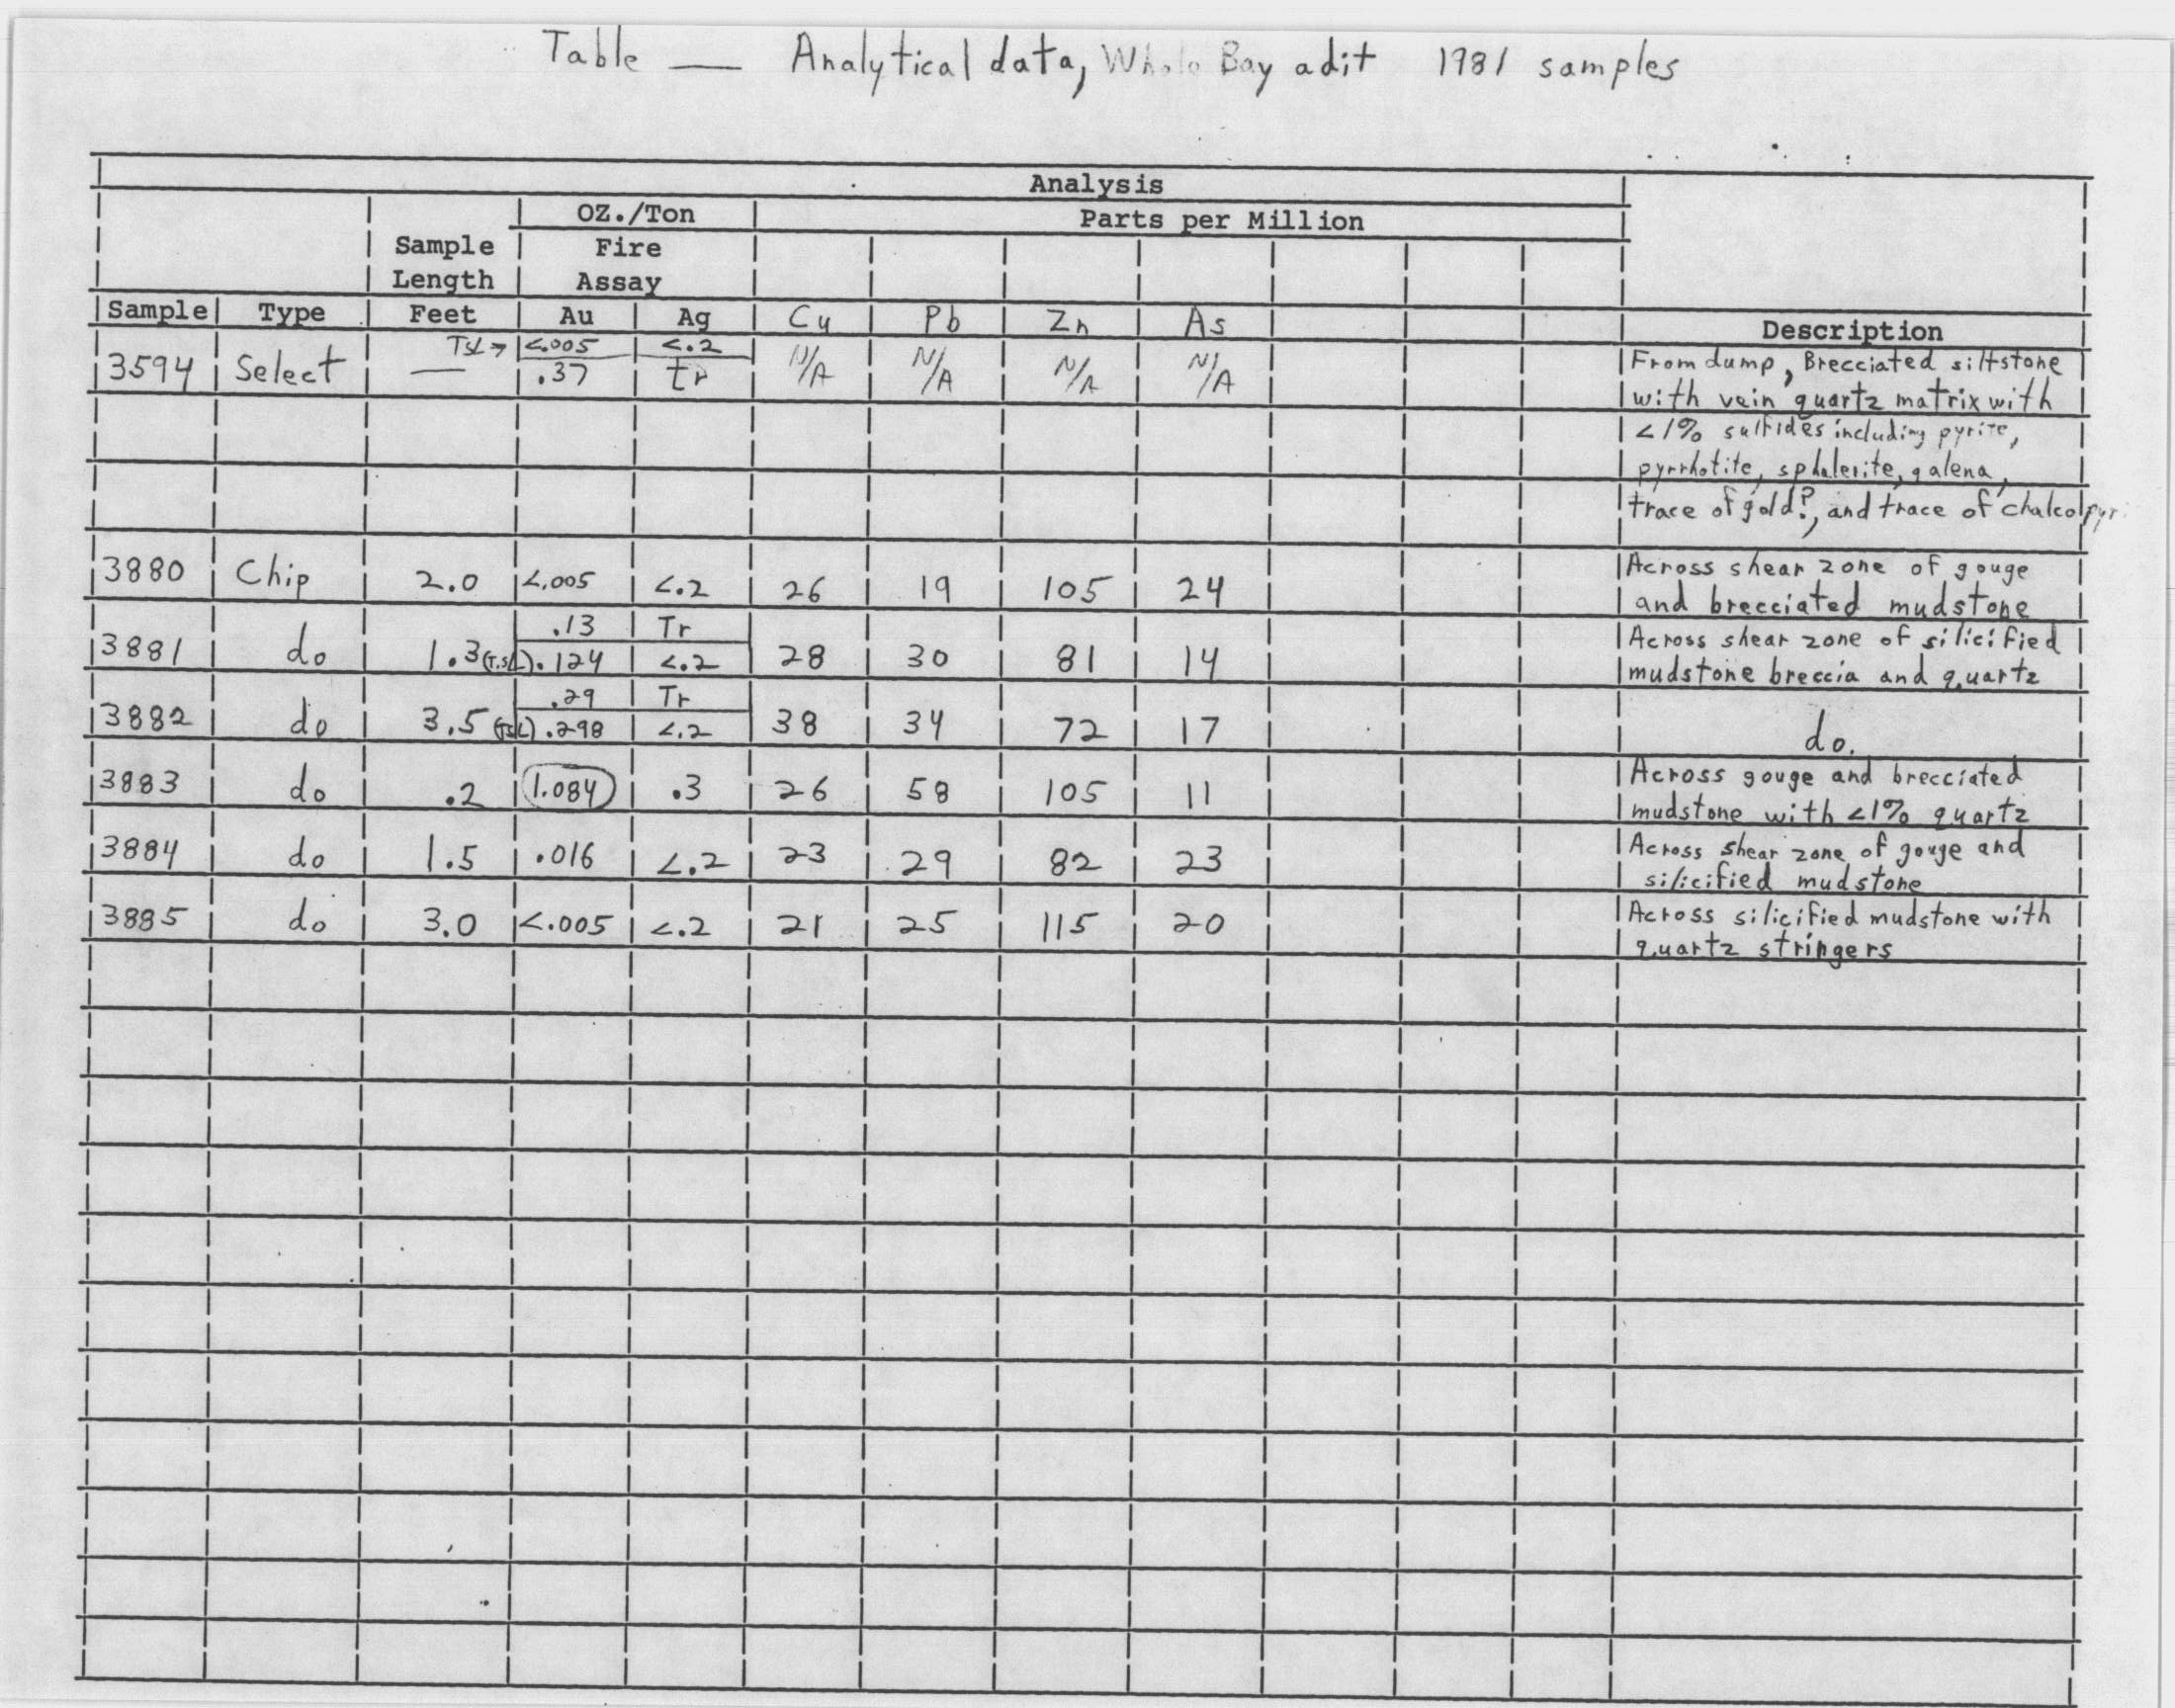 Table — Analytical data, Bay adit 1981 samples
Analysis
OZ./Ton Parts per Million
Sample Fire
Length Assay
Sample Type Feet Au Ag Cu Pb Zn As Description
TSL→ <.005 <.2
3594 Select — .37 tr N/A N/A N/A N/A From dump, Brecciated siltstone
with vein quartz matrix with
<1% sulfides including pyrite,
pyrrhotite, sphalerite, galena,
trace of gold?, and trace of chalcopyr
3880 Chip 2.0 <.005 <.2 26 19 105 24 Across shear zone of gouge
and brecciated mudstone
.13 Tr
3881 do 1.3 (TSL) .124 <.2 28 30 81 14 Across shear zone of silicified
mudstone breccia and quartz
.29 Tr
3882 do 3.5 (TSL) .298 <.2 38 34 72 17 do.
3883 do .2 1.084 .3 26 58 105 11 Across gouge and brecciated
mudstone with <1% quartz
3884 do 1.5 .016 <.2 23 29 82 23 Across shear zone of gouge and
silicified mudstone
3885 do 3.0 <.005 <.2 21 25 115 20 Across silicified mudstone with
quartz stringers